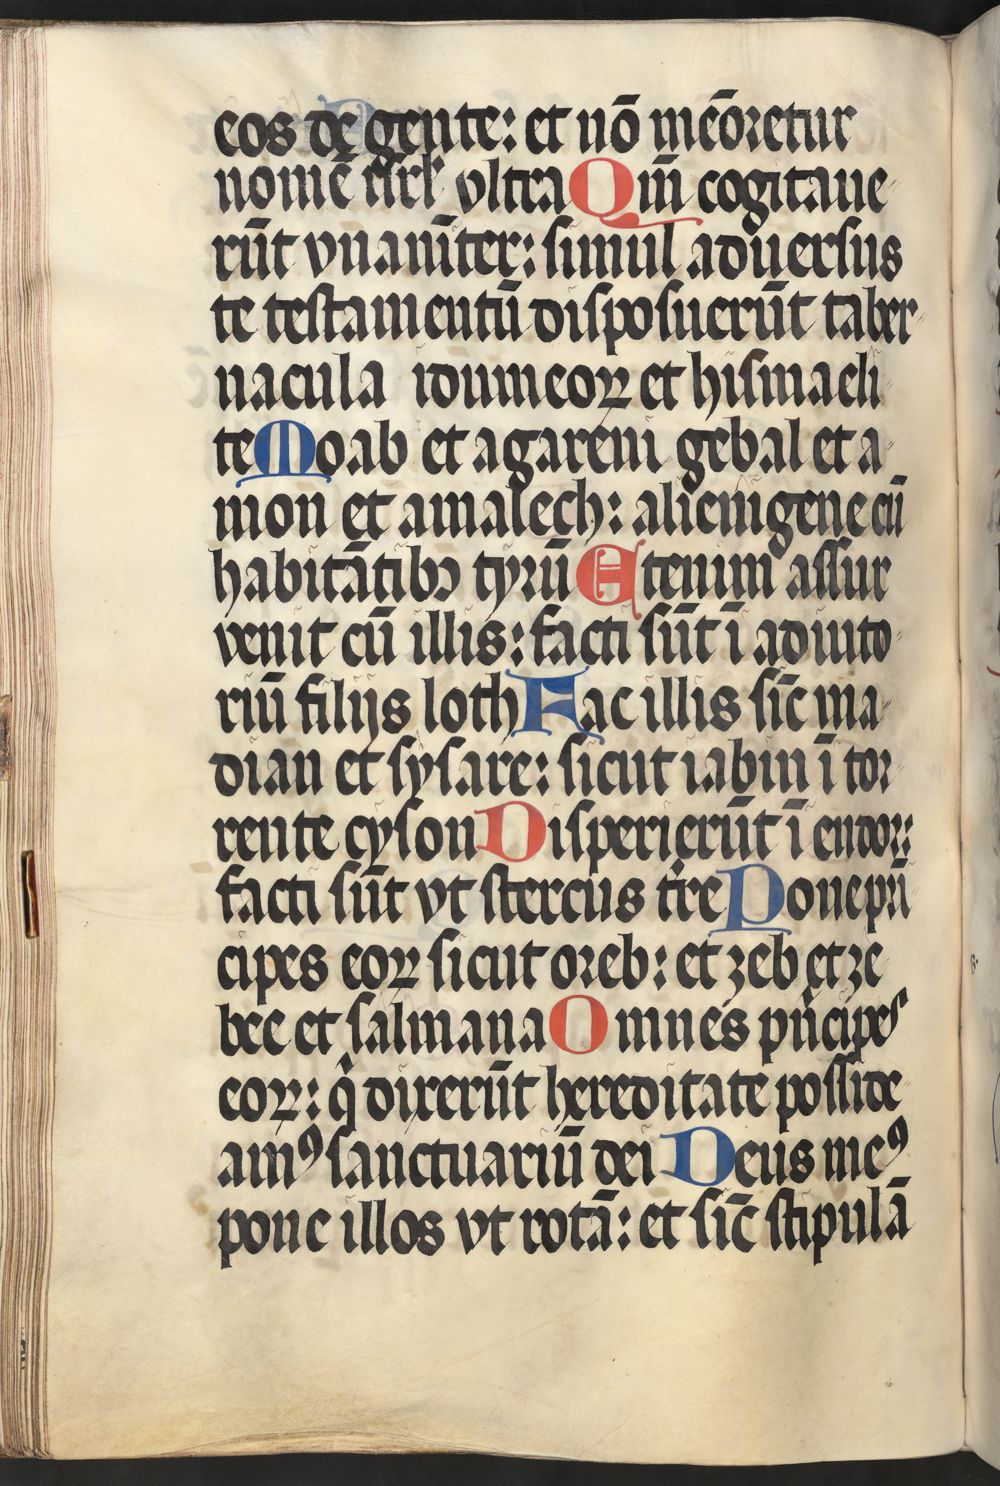 eos de gente: et nō mēoꝛetur
nomē iſrl' vltra Qm̄ cogitaue
rūt vnanīter: ſimul aduerſus
te teſtamentū diſpoſuerūt taber
nacula idumeoꝝ et hiſmaeli
te Moab et agareni gebal et a
mon et amalech: alienigene cū
habitātibꝰ tyꝛū Etenim aſſur
venit cū illis: facti ſūt ī adiuto
riū filijs loth Fac illis ſic̄ ma
dian et ſyſare: ſicut iabin ī toꝛ
rente cyſon Diſperierūt ī endoꝛ:
facti ſūt vt ſtercus tr̄e Pone pꝛī
cipes eoꝝ ſicut oꝛeb: et zeb et ze
bee et ſalmana Omnes pn̄cipes
eoꝝ: q̇ dixerūt hereditate poſſide
amꝰ ſanctuariū dei Deus meꝰ
pone illos vt rotā: et ſic̄ ſtipulā